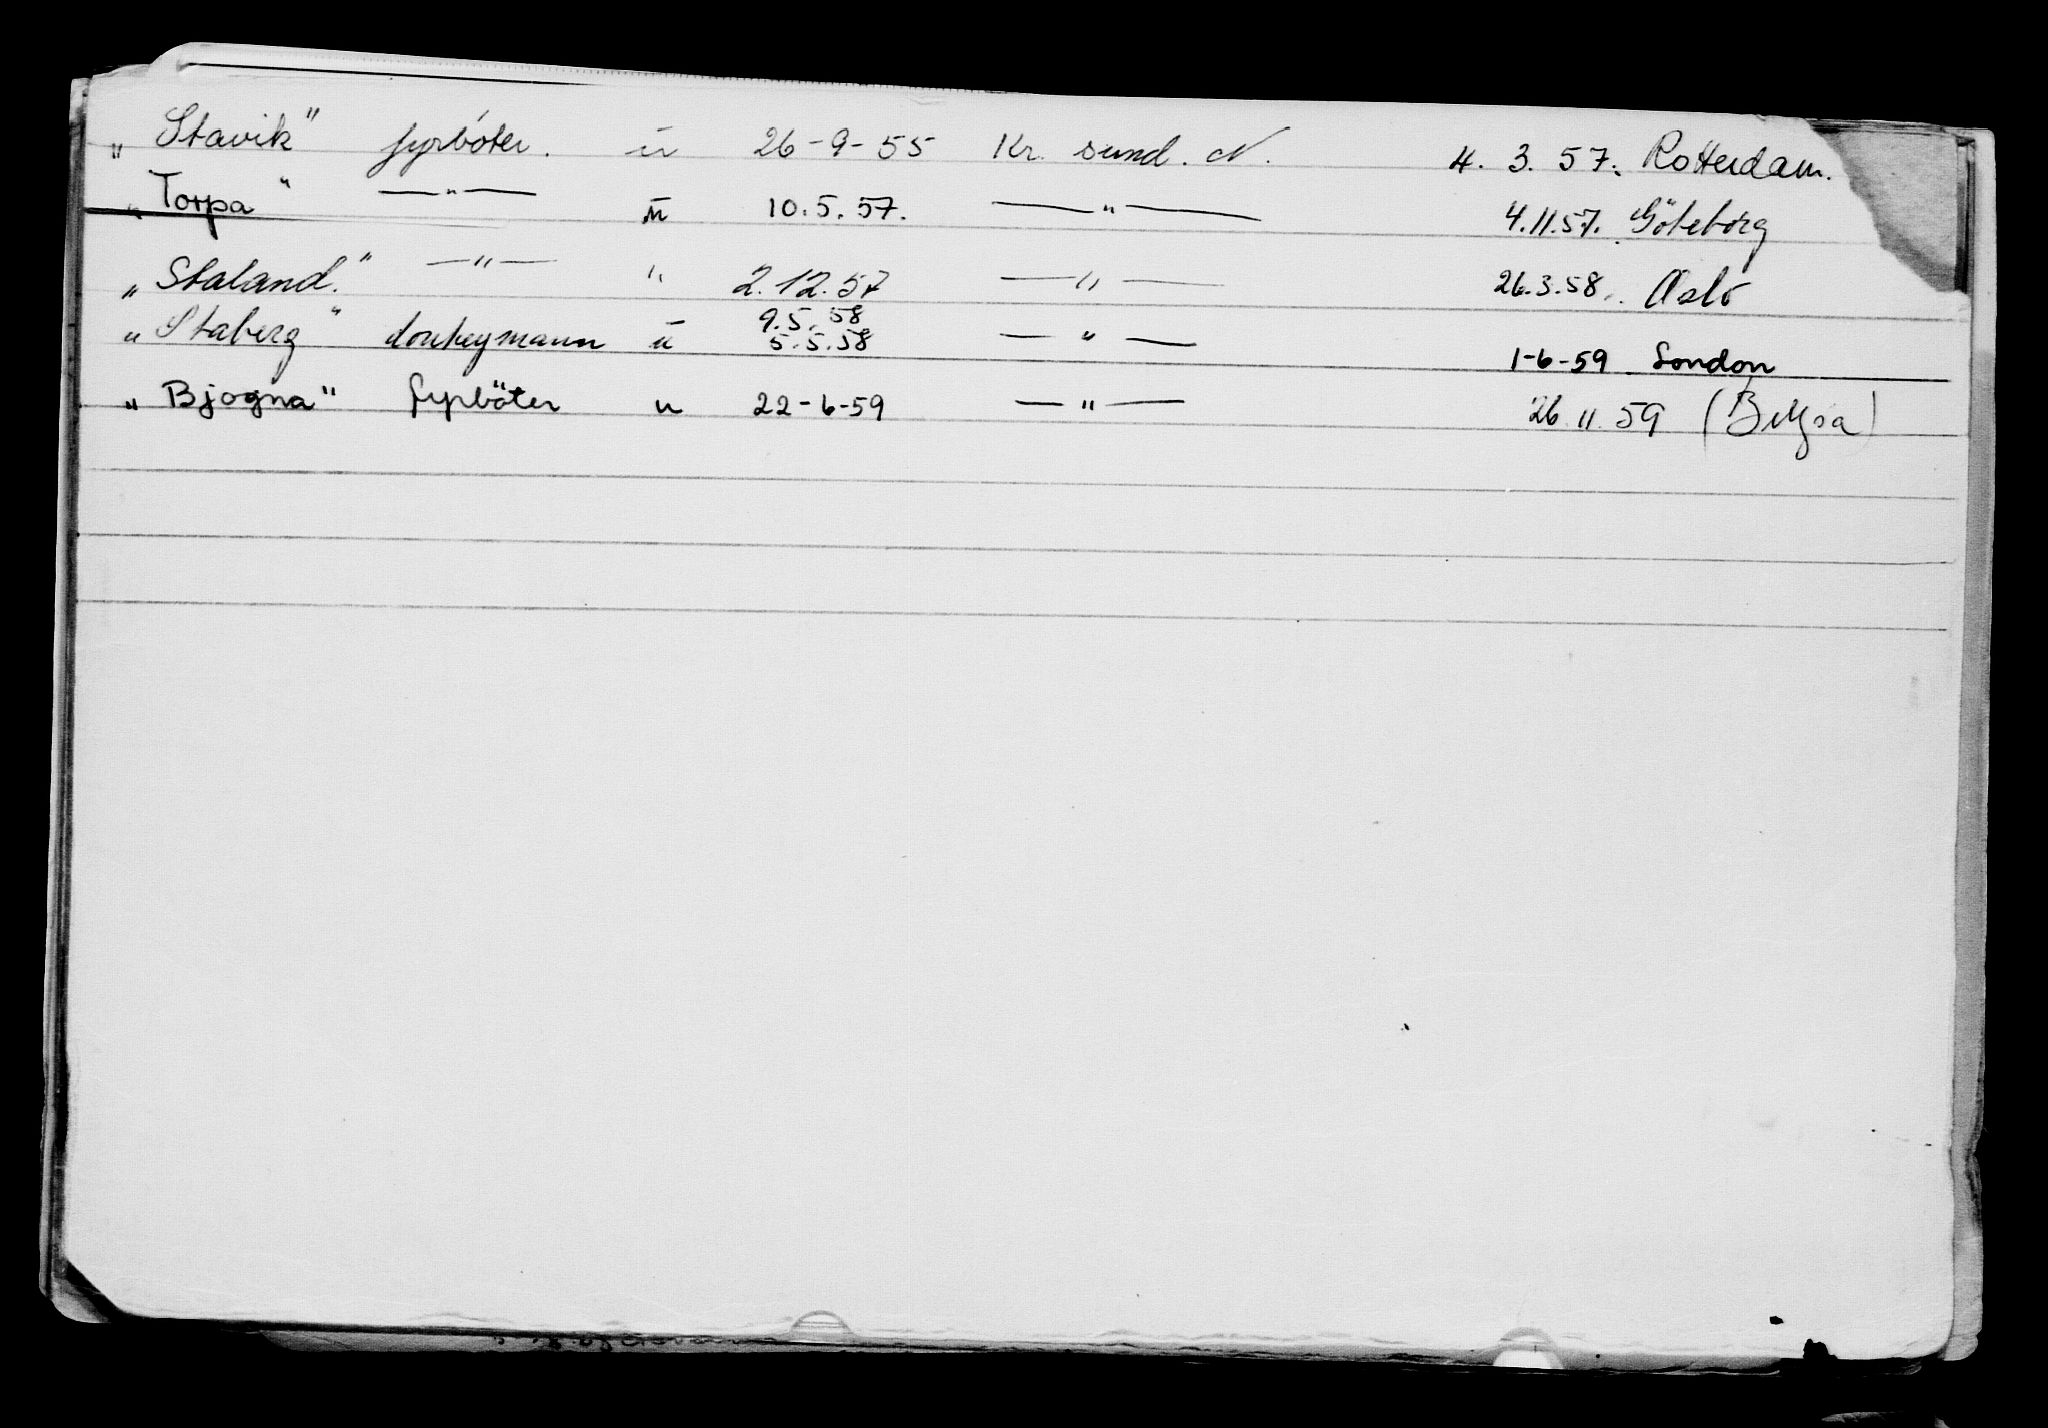 „Stavik" fyrböter. u 26-9-55 Kr. sund. N. 4. 3. 57. Rotterdam.
„Torpa" —"— u 10.5.57. —"— 4.11.57. Göteborg
„Staland." —"— " 2.12.57 —"— 26.3.58. Oslo
9.5.58
„Staberg" donkeymann u 5.5.58 —"— 1-6-59 London
„Bjogna" fyrböter u 22-6-59 —"— 26.11.59